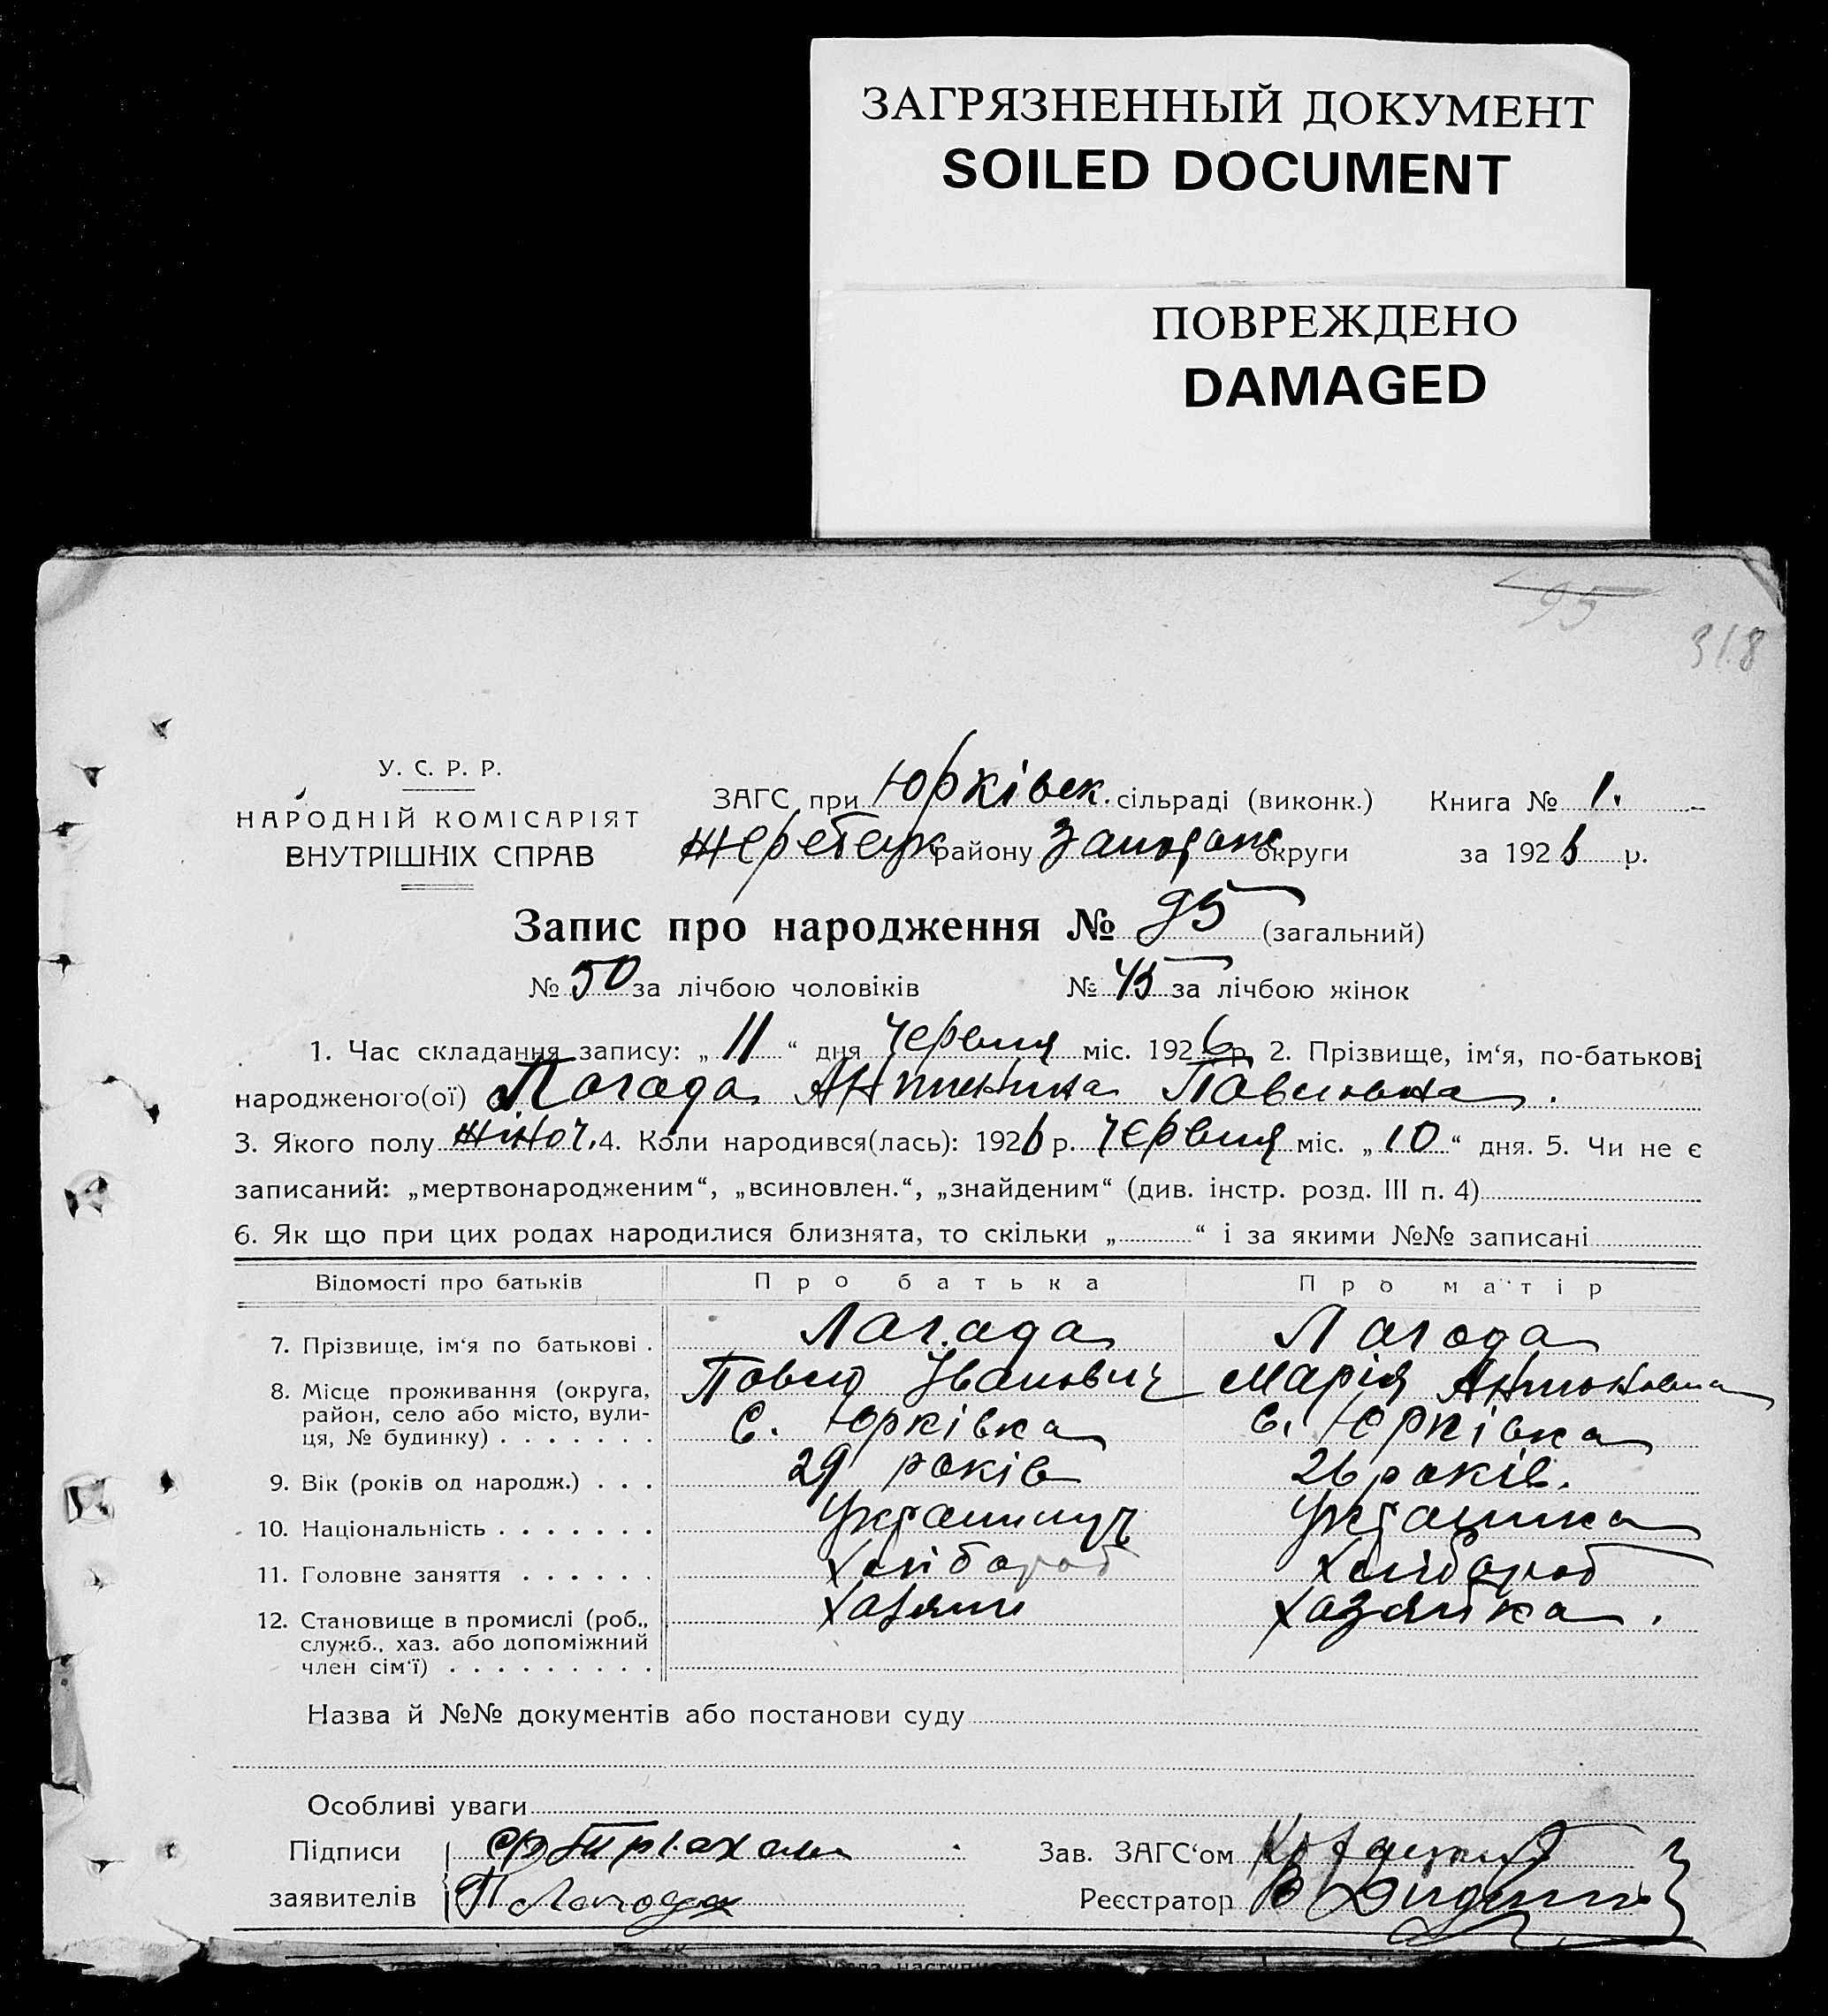 ЗАГРЯЗНЕННЫЙ ДОКУМЕНТ
SOILED DOCUMENT
ПОВРЕЖДЕНО
DAMAGED
95
318
У. С. Р. Р.
НАРОДНІЙ КОМІСАРІЯТ
ВНУТРІШНІХ СПРАВ
ЗАГС при Юрківск. сільраді (виконк.) Книга № 1.
Жеребецк району Запоріж округи за 1926 р.
Запис про народження № 95 (загальний)
№ 50 за лічбою чоловіків № 45 за лічбою жінок
1. Час складання запису: „ 11 “ дня Червня міс. 1926 р. 2. Прізвище, ім‘я, по-батькові
народженого(ої) Лагода Антоніна Павловна.
3. Якого полу жіноч. 4. Коли народився(лась): 1926 р. червня міс. „ 10 “ дня. 5. Чи не є
записаний: „мертвонародженим“, „всиновлен.“, „знайденим“ (див. інстр. розд. III п. 4)
6. Як що при цих родах народилися близнята, то скільки „ “ і за якими №№ записані
Відомості про батьків Про батька Про матір
7. Прізвище, ім‘я по батькові . Лагода Лагода
Павло Іванович Марія Антоновна
8. Місце проживання (округа, район, село або місто, вулиця, № будинку) . . . . . . . с. Юрківка с. Юрківка
9. Вік (років од народж.) . . . 29 років 26 років.
10. Національність . . . . . . . Українець Українка
11. Головне заняття . . . . . . Хлібороб Хлібороб
12. Становище в промислі (роб., служб., хаз. або допоміжний член сім‘ї) . . . . . . . . . Хазяин Хазяйка.
Назва й №№ документів або постанови суду
Особливі уваги
Підписи
заявителів П Лагода
Зав. ЗАГС‘ом
Реєстратор